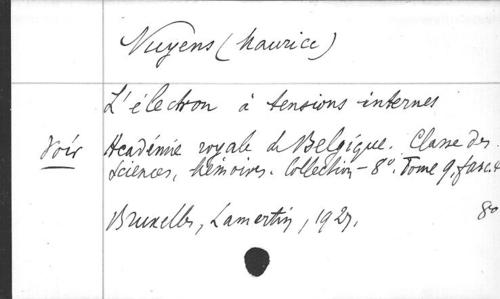 Nuyens (Maurice)
L'électron à tensions internes
Voir Académie royale de Belgique. Classe des
Sciences, Mémoires. Collection - 8°. Tome 9, fasc. 4
Bruxelles, Lamertin, 1927.
8°